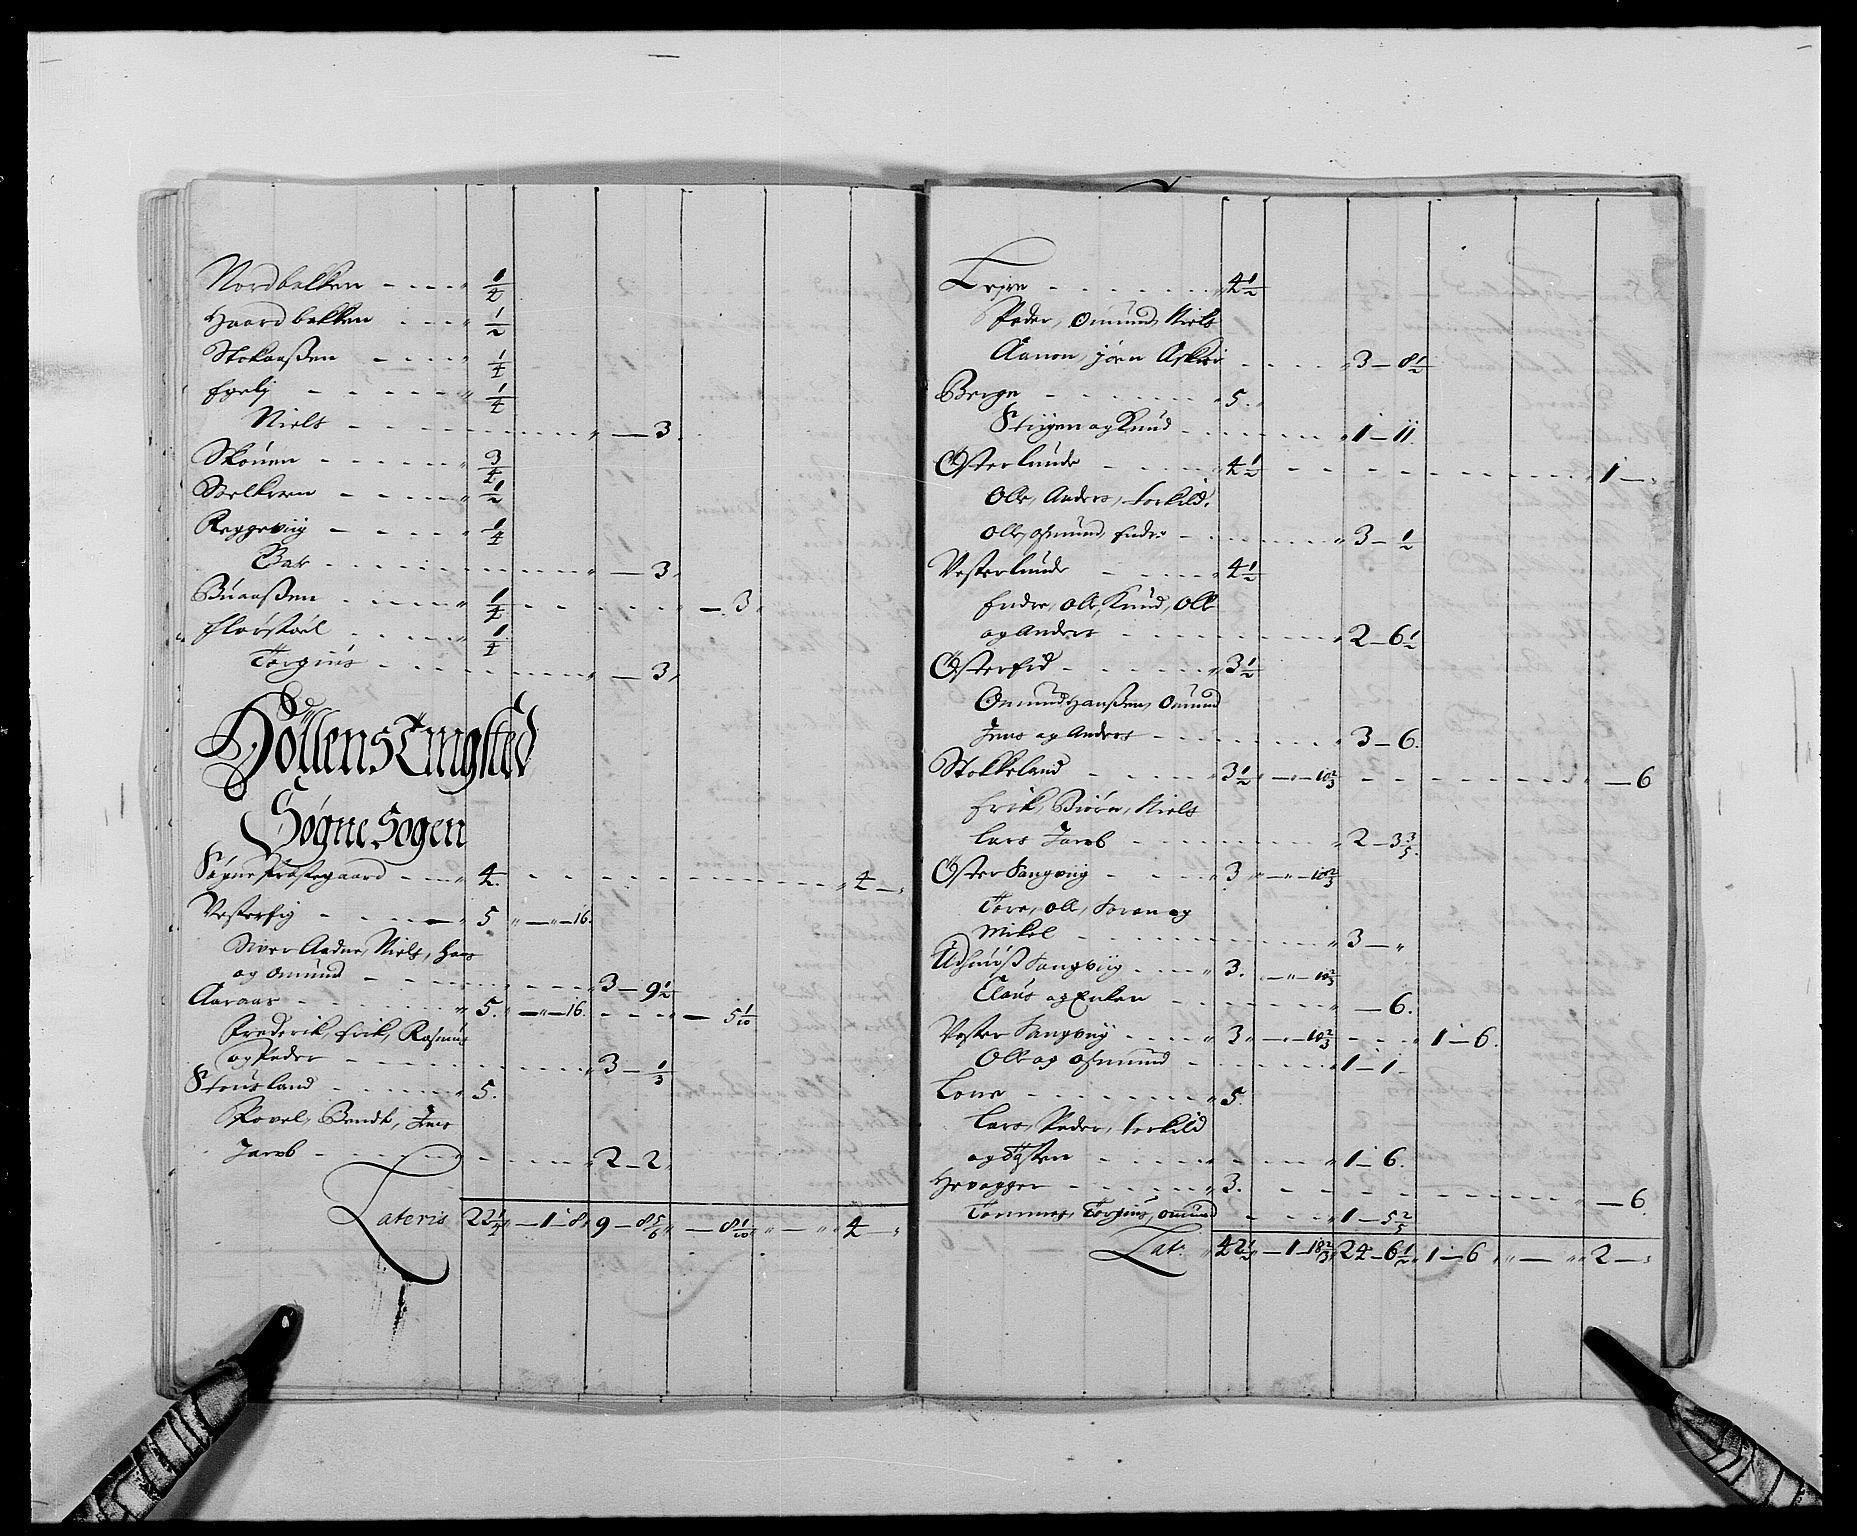 Nordbakken - - - - " 1/4
Haardbakken - - - " 1/2
Stokaaßen - - - - " 1/4
Egelj - - - - - - " 1/4
Niels - - - - - - - - - " — 3.
Skouen - - - - - " 3/4
Stelkreen - - - - " 1/2
Reggeviig - - - - 1/4
Baar - - - - - - - - - " — 3.
Buaaßen - - - - - " 1/4 - - - - - - - — 3.
Flørstøel - - - - - " 1/4
Torgius - - - - - - - - - " — 3.
Höllens Tingsted
Søgne Sogen
Søgne Præstegaard - - - " 4. - - - - - - - - - - - " 4 — "
Vesterfig - - - - - - " 5 " — " — 16.
Siver Aadne, Niels, Hans
og Omund - - - - - - - - - 3 — 9 1/2
Aaraas - - - - - - " 5. " — " — 16. - - - - " — 5 1/10
Frederik, Erik, Rasmus
og Peder - - - - - - - - - 3 — 1/3
Stousland - - - - - " 5.
Povel, Bendt, Jens
Jacob - - - - - - - - - " 2 — 2.
Lateris 22 1/4 " — 1 — 8 " 9 — 8 5/6 " — 8 1/10 " — " " 4 — "
Leire - - - - - - - " 4 1/2
Peder, Omund, Niels
Aanon, Jörn Asker - - - - " 3 — 8 1/2
Berge - - - - - - - " 5.
Stiigen og Knud - - - - - - " 1 — 11.
Østerlunde - - - - - " 4 1/2 - - - - - - - - - - 1 — "
Olle, Anders, Torkild,
Olle, Osmund, Endre - - - - - " 3 — 1/2
Vesterlunde - - - - " 4 1/2
Endre, Olle, Knud, Olle
og Anders - - - - - - - - " 2 — 6 1/2
Østereid - - - - - - " 3 1/2
Omund Hanßen, Omund
Jens og Anders - - - - - - - " 3 — 6.
Stokkeland - - - - - " 3 1/2 " — " — 10 2/3 - - - - - - - - " — 6
Erik, Biörn, Niels
Lars Jacob - - - - - - - - " 2 — 3 3/5.
Øster Langviig - - - - " 3 " — " — 10 2/3
Tore, Olle, Soren og
Mikel - - - - - - - - - " 3 — "
Udhnuß Langviig - - - - " 3. " — " — 10 2/3
Claus og Enken - - - - - - " — 6.
Vester Langviig - - - - " 3 " — " — 10 2/3 - - - - 1 — 6.
Olle og Osmund - - - - - - - 1 — 1.
Lone - - - - - - - " 5.
Lars, Peder, Torkild
og Østen - - - - - - - - - " 1 — 6.
Hevagger - - - - - - " 3. - - - - - - - - - - " — 6.
Tommes, Torgius, Omund - - - - " 1 — 5 2/5
Lat: " 42 1/2 " — 1 — 18 2/3 " 24 — 6 1/2 " 1 — 6 " — " " 2 — "